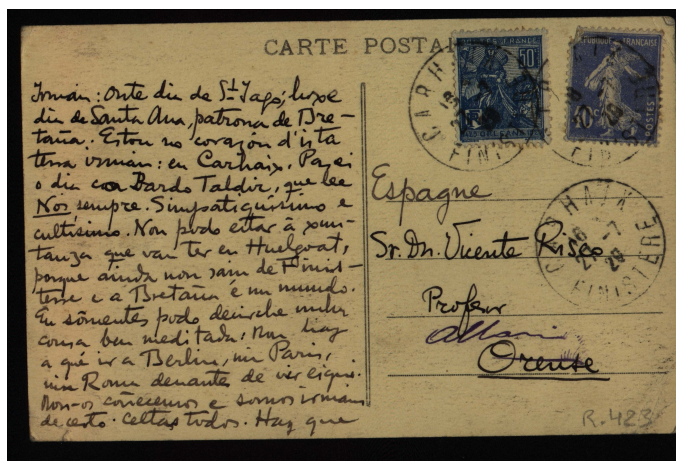 CARTE POSTA
Irmán: Onte día de St Iago; hoxe
día de Santa Ana, patrona de Bre-
taña. Estou no corazón d'ista
terra irman: en Carhaix. Pasei
o día co Bardo Taldir, que lee
Nós sempre. Simpatiquísimo e
cultísimo. Non podo estar â xun-
tanza que van ter en Huelgoat,
porque ainda non saín de Finist-
terre e a Bretaña é un mundo.
Eu sômentes podo decirche unha
cousa ben meditada: Non hay
a qué ir a Berlin, nin Paris,
nin Roma denantes de vir eiquí.
Non-os coñecemos e somos irmáns
de certo. Celtas todos. Hay que
50
POSTES FRANCE
REPUBLIQUE FRANÇAISE
POSTES
CARHAIX
FINISTERE
Espagne
Sr. Dn. Vicente Risco
Profesor
Orense
CARHAIX
26 -7
29
FINISTERE
R.423